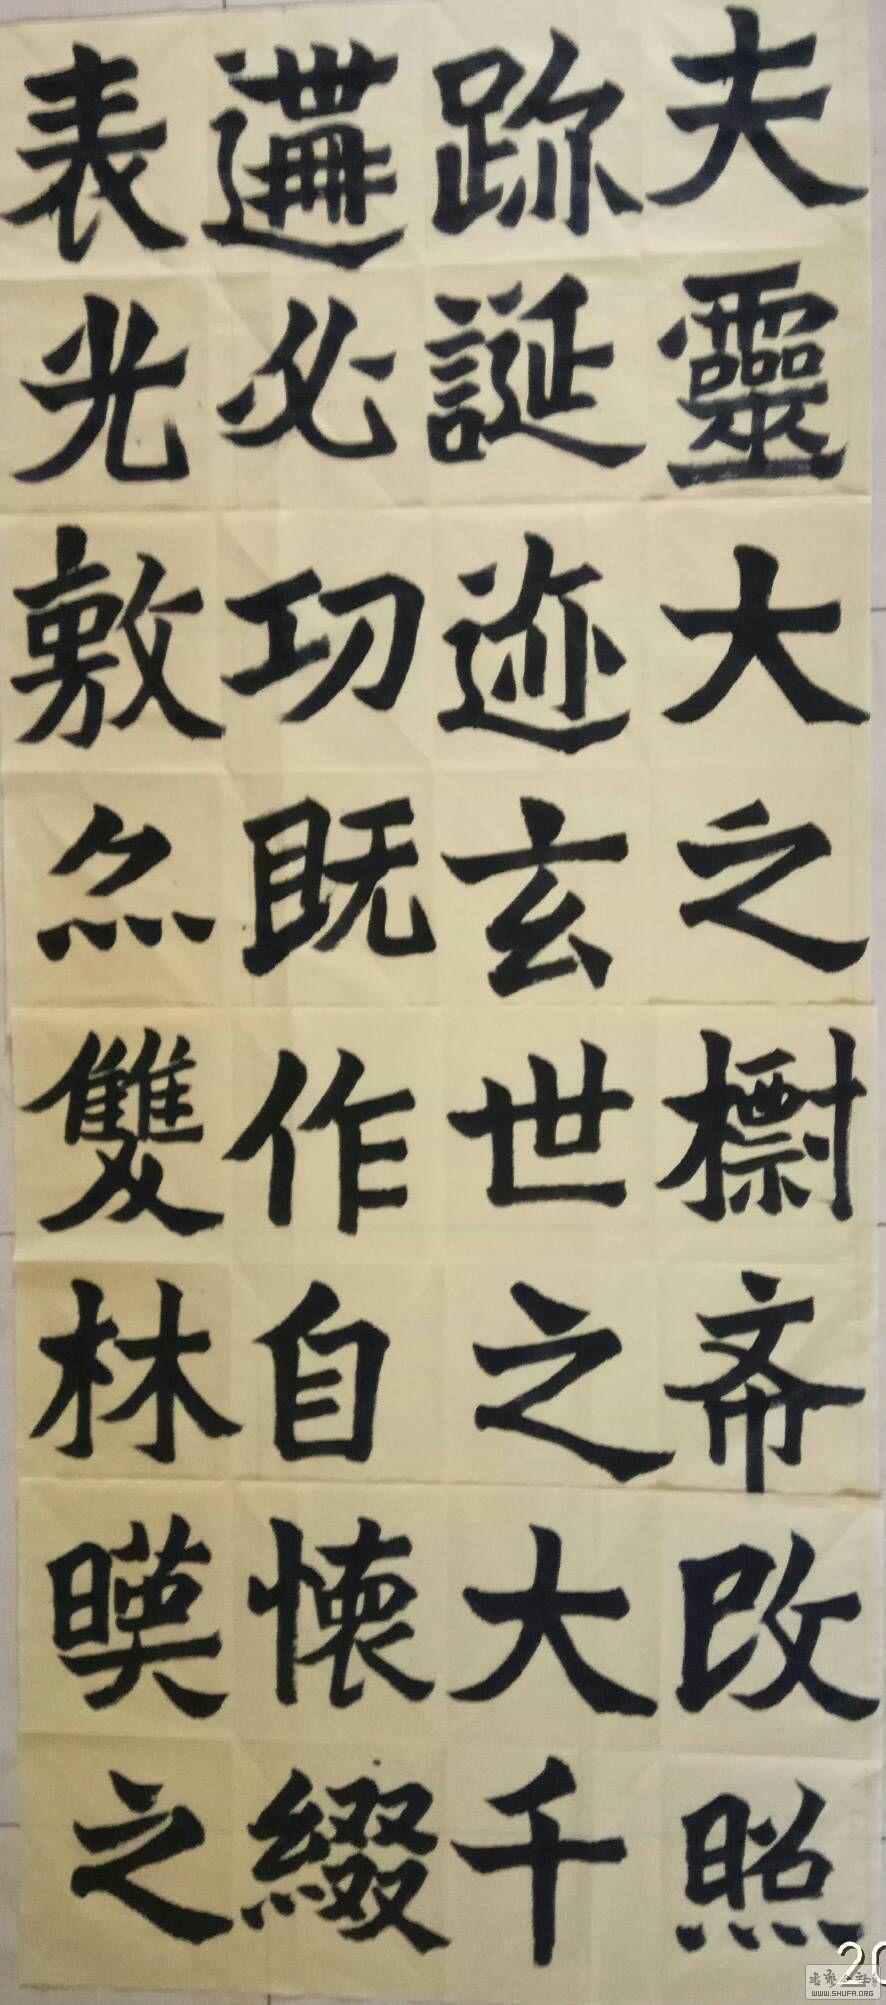 夫靈大之櫥斋改照
跡誕迹玄世之大千
遘必功既作自懷綴
表光敷𠂊雙林暵之
20
书艺公社
WWW.SHUFA.ORG